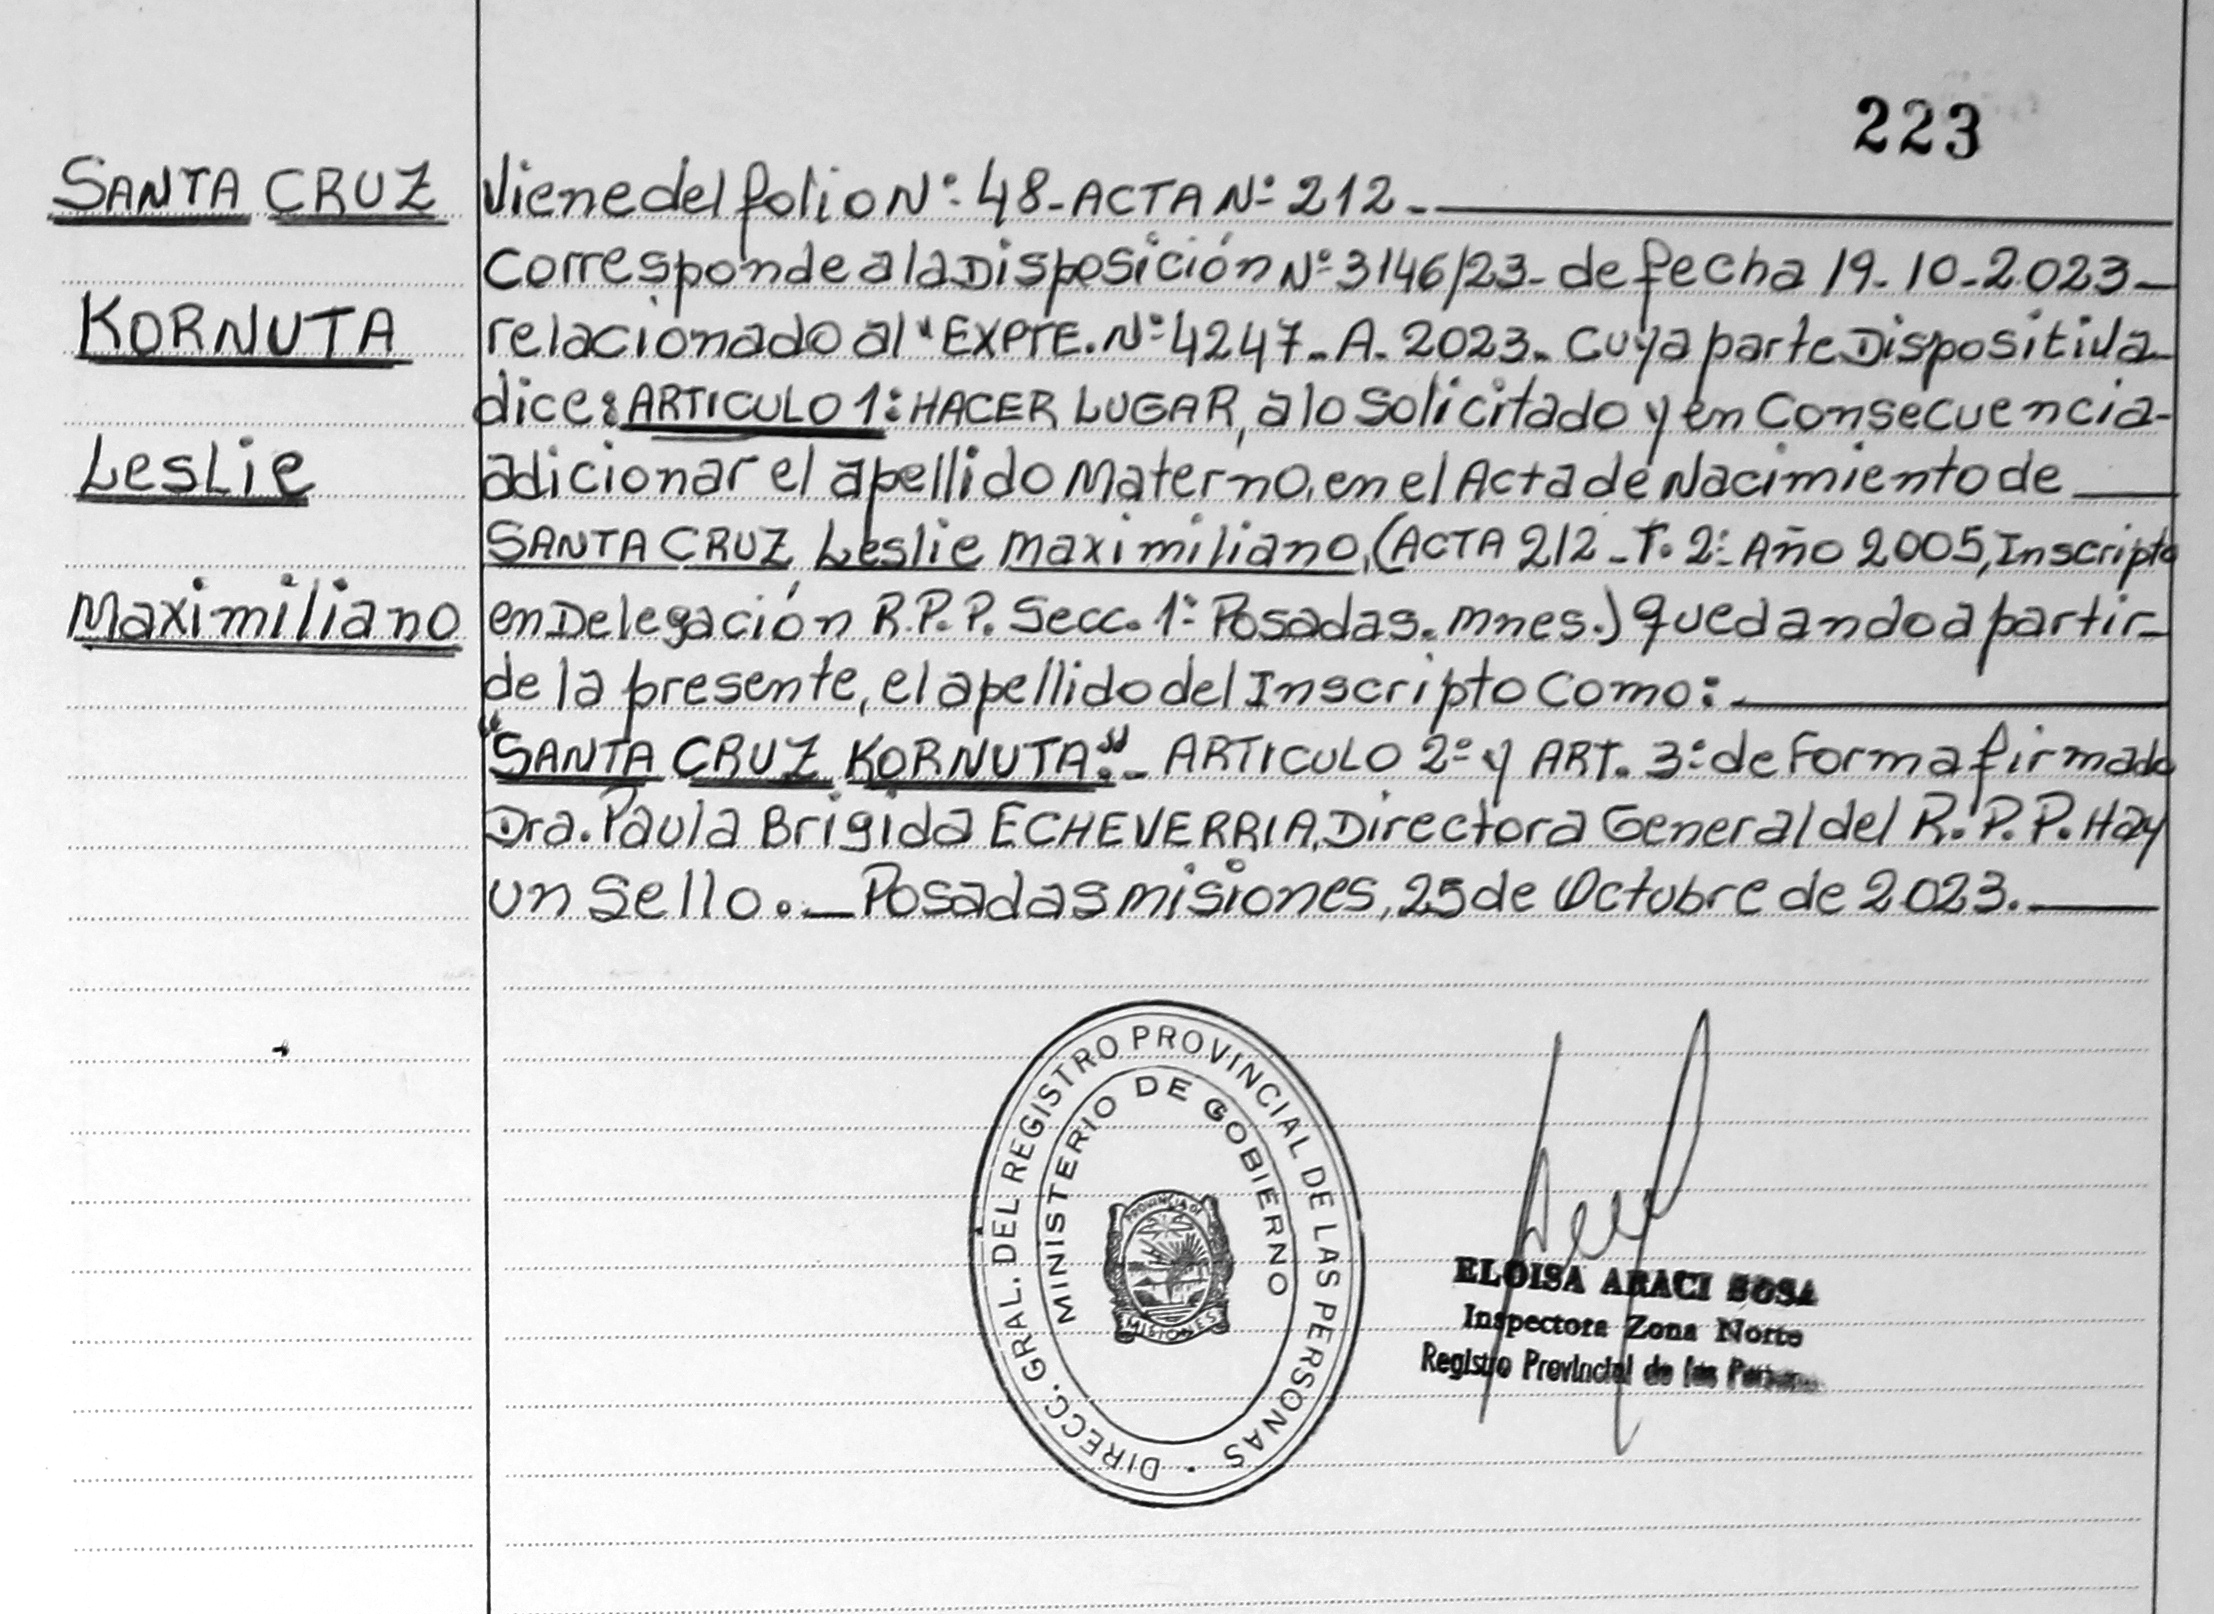 223
SANTA CRUZ
KORNUTA
Leslie
Maximiliano
Viene del folio Nº: 48- ACTA Nº 212.-
Corresponde a la Disposición Nº 3146/23- de fecha 19-10-2023-
relacionado al "EXPTE. Nº 4247- A- 2023- cuya parte Dispositiva
dice: ARTICULO 1: HACER LUGAR, a lo solicitado y en Consecuencia-
adicionar el apellido Materno, en el Acta de Nacimiento de
SANTA CRUZ Leslie Maximiliano, (ACTA 212 - T. 2º Año 2005, Inscripto
en Delegación R.P.P. Secc. 1º Posadas. Mnes.) quedando a partir-
de la presente, el apellido del Inscripto Como:
"SANTA CRUZ KORNUTA".- ARTICULO 2º y ART. 3º de Forma firmado
Dra. Paula Brigida ECHEVERRIA, Directora General del R.P.P. Hay
un Sello. - Posadas Misiones, 25 de Octubre de 2023.
DIRECC. GRAL. DEL REGISTRO PROVINCIAL DE LAS PERSONAS
MINISTERIO DE GOBIERNO
PROVINCIA DE
MISIONES
ELOISA ARACI SOSA
Inspectora Zona Norte
Registro Provincial de las